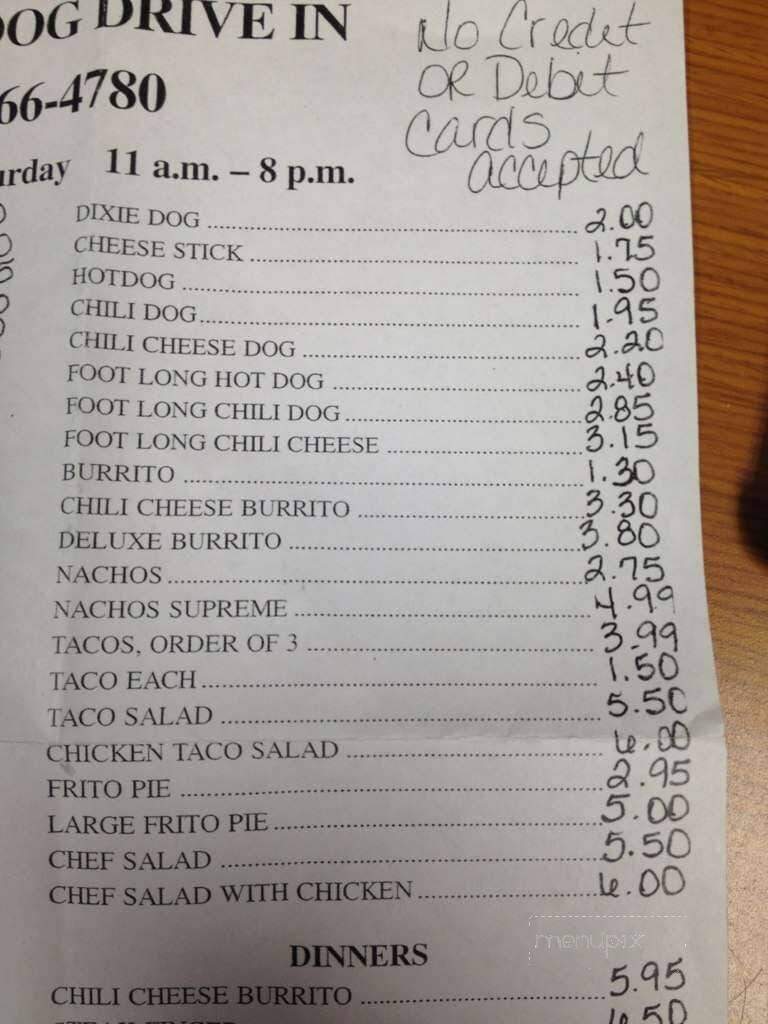 OG DRIVE IN
66-4780
No Credit
OR Debit
Cards
accepted
urday 11 a.m. – 8 p.m.
DIXIE DOG 2.00
CHEESE STICK 1.75
HOTDOG 1.50
CHILI DOG 1.95
CHILI CHEESE DOG 2.20
FOOT LONG HOT DOG 2.40
FOOT LONG CHILI DOG 2.85
FOOT LONG CHILI CHEESE 3.15
BURRITO 1.30
CHILI CHEESE BURRITO 3.30
DELUXE BURRITO 3.80
NACHOS 2.75
NACHOS SUPREME 4.99
TACOS, ORDER OF 3 3.99
TACO EACH 1.50
TACO SALAD 5.50
CHICKEN TACO SALAD 6.00
FRITO PIE 2.95
LARGE FRITO PIE 5.00
CHEF SALAD 5.50
CHEF SALAD WITH CHICKEN 6.00
menupix
DINNERS
CHILI CHEESE BURRITO 5.95
6.50